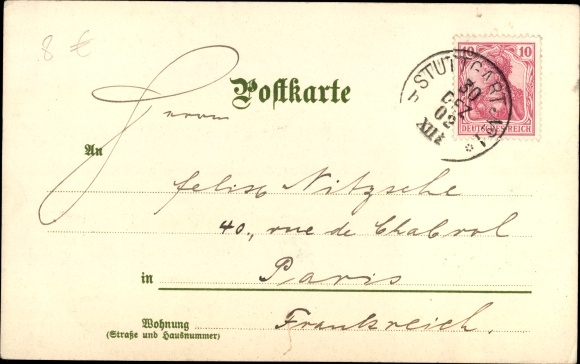 8 €
10 10
DEUTSCHES REICH
STUTTGART No 1
30
DEZ
02
XII
Postkarte
Herrn
An
Felix Nitzsche
40., rue de Chabrol
in Paris
Wohnung
(Straße und Hausnummer)
Frankreich.